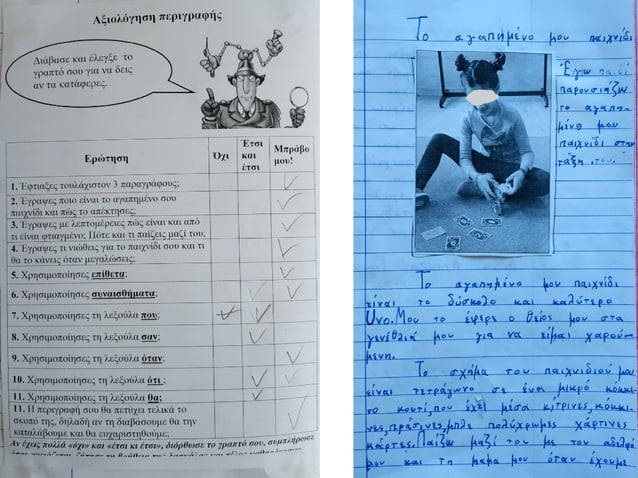 Αξιολόγηση περιγραφής
Διάβασε και έλεγξε το
γραπτό σου για να δεις
αν τα κατάφερες.
Ερώτηση
Όχι
Έτσι
και
έτσι
Μπράβο
μου!
1. Έφτιαξες τουλάχιστον 3 παραγράφους;
2. Έγραψες ποιο είναι το αγαπημένο σου
παιχνίδι και πώς το απέκτησες;
3. Έγραψες με λεπτομέρειες πώς είναι και από
τι είναι φτιαγμένο; Πότε και τι παίζεις μαζί του;
4. Έγραψες τι νιώθεις για το παιχνίδι σου και τι
θα το κάνεις όταν μεγαλώσεις;
5. Χρησιμοποίησες επίθετα;
6. Χρησιμοποίησες συναισθήματα;
7. Χρησιμοποίησες τη λεξούλα που;
8. Χρησιμοποίησες τη λεξούλα σαν;
9. Χρησιμοποίησες τη λεξούλα όταν;
10. Χρησιμοποίησες τη λεξούλα ότι;
11. Χρησιμοποίησες τη λεξούλα θα;
11. Η περιγραφή σου θα πετύχει τελικά το
σκοπό της, δηλαδή αν τη διαβάσουμε θα την
καταλάβουμε και θα ευχαριστηθούμε;
Αν έχεις πολλά «όχι» και «έτσι κι έτσι», διόρθωσε το γραπτό σου, συμπλήρωσε
Το αγαπημένο μου παιχνίδι
Εγώ
παρουσιάζω
το αγαπη-
μένο μου
παιχνίδι στην
τάξη
Το αγαπημένο μου παιχνίδι
είναι το δύσκολο και καλύτερο
Uno. Μου το έφερε ο θείος μου στα
γενέθλιά μου για να είμαι χαρού-
μενη.
Το σχήμα του παιχνιδιού μου
είναι τετράγωνο σε ένα μικρό κόκκι-
νο κουτί, που έχει μέσα κίτρινες, κόκκι-
νες, πράσινες, μπλε πολύχρωμες χάρτινες
κάρτες. Παίζω μαζί του με τον αδελφό
μου και τη μαμά μου όταν έχουμε